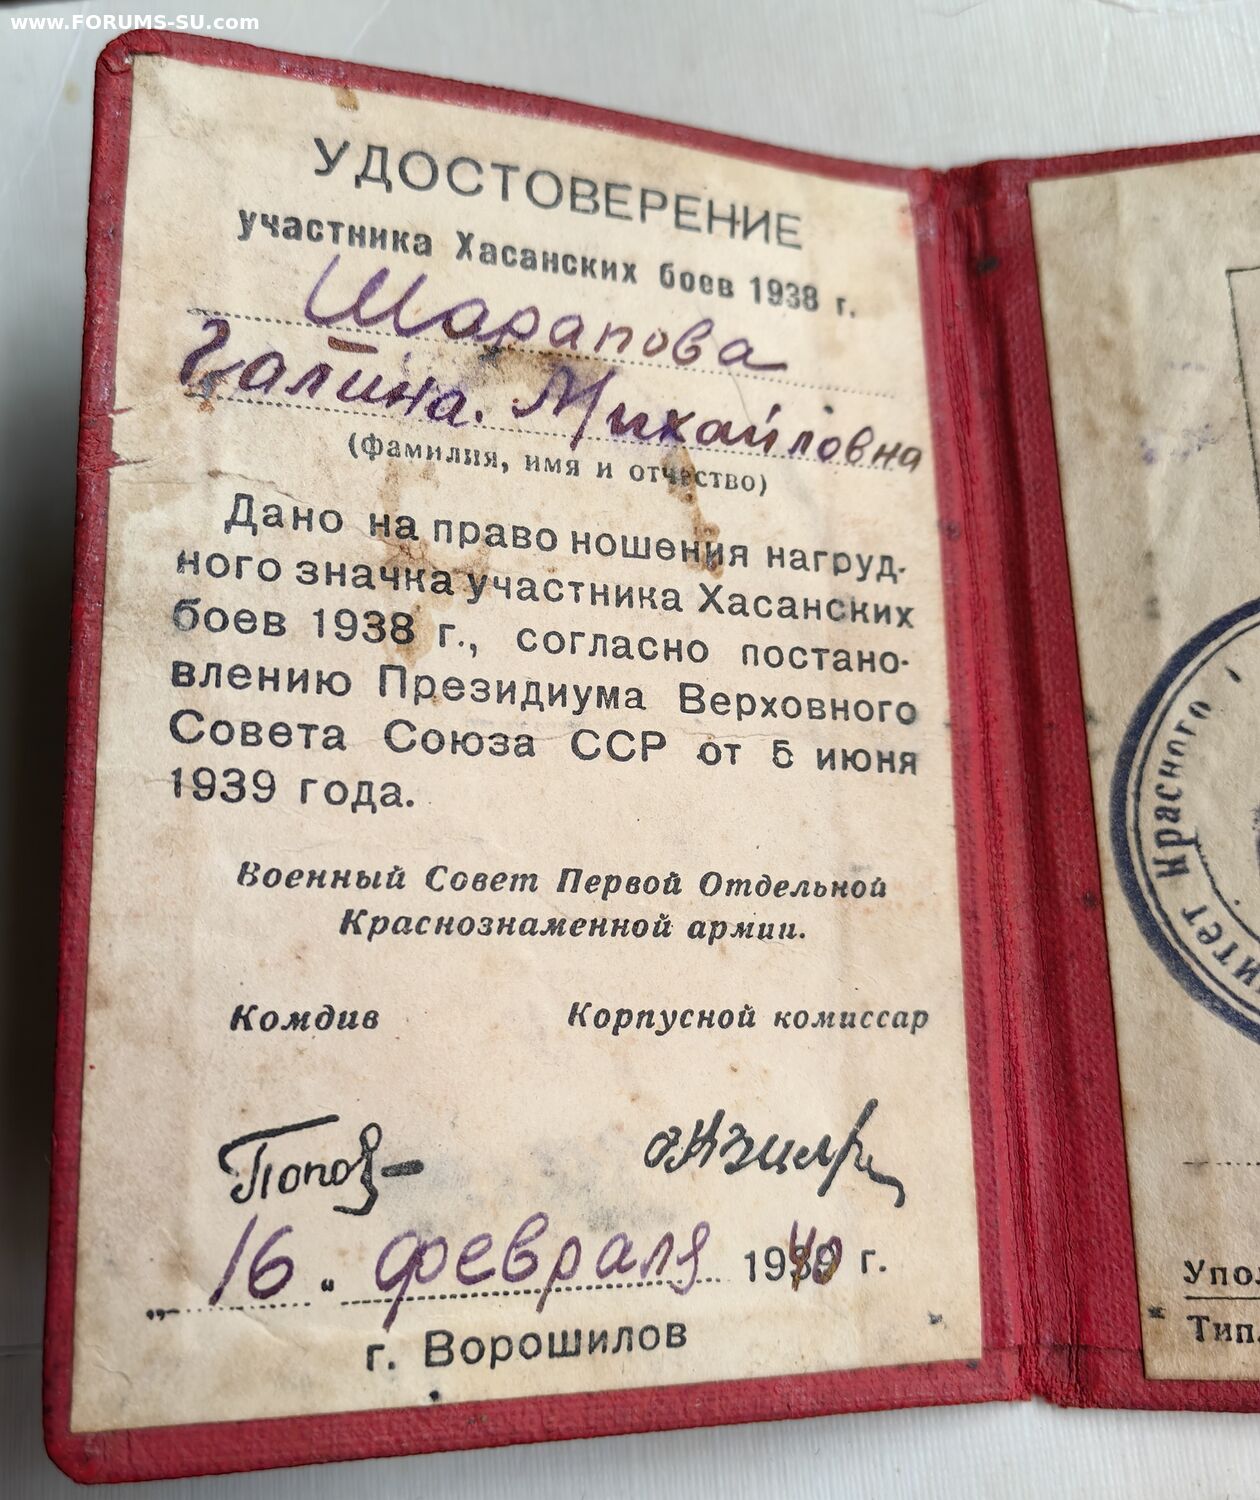 www.FORUMS-SU.com
УДОСТОВЕРЕНИЕ
участника Хасанских боев 1938 г.
Шарапова
Галина. Михайловна
(фамилия, имя и отчество)
Дано на право ношения нагруд-
ного значка участника Хасанских
боев 1938 г., согласно постано-
влению Президиума Верховного
Совета Союза ССР от 5 июня
1939 года.
Военный Совет Первой Отдельной
Краснознаменной армии.
Комдив Корпусной комиссар
Попов
„16“ февраля 1940 г.
г. Ворошилов
итет Красного
Упол
Тип.